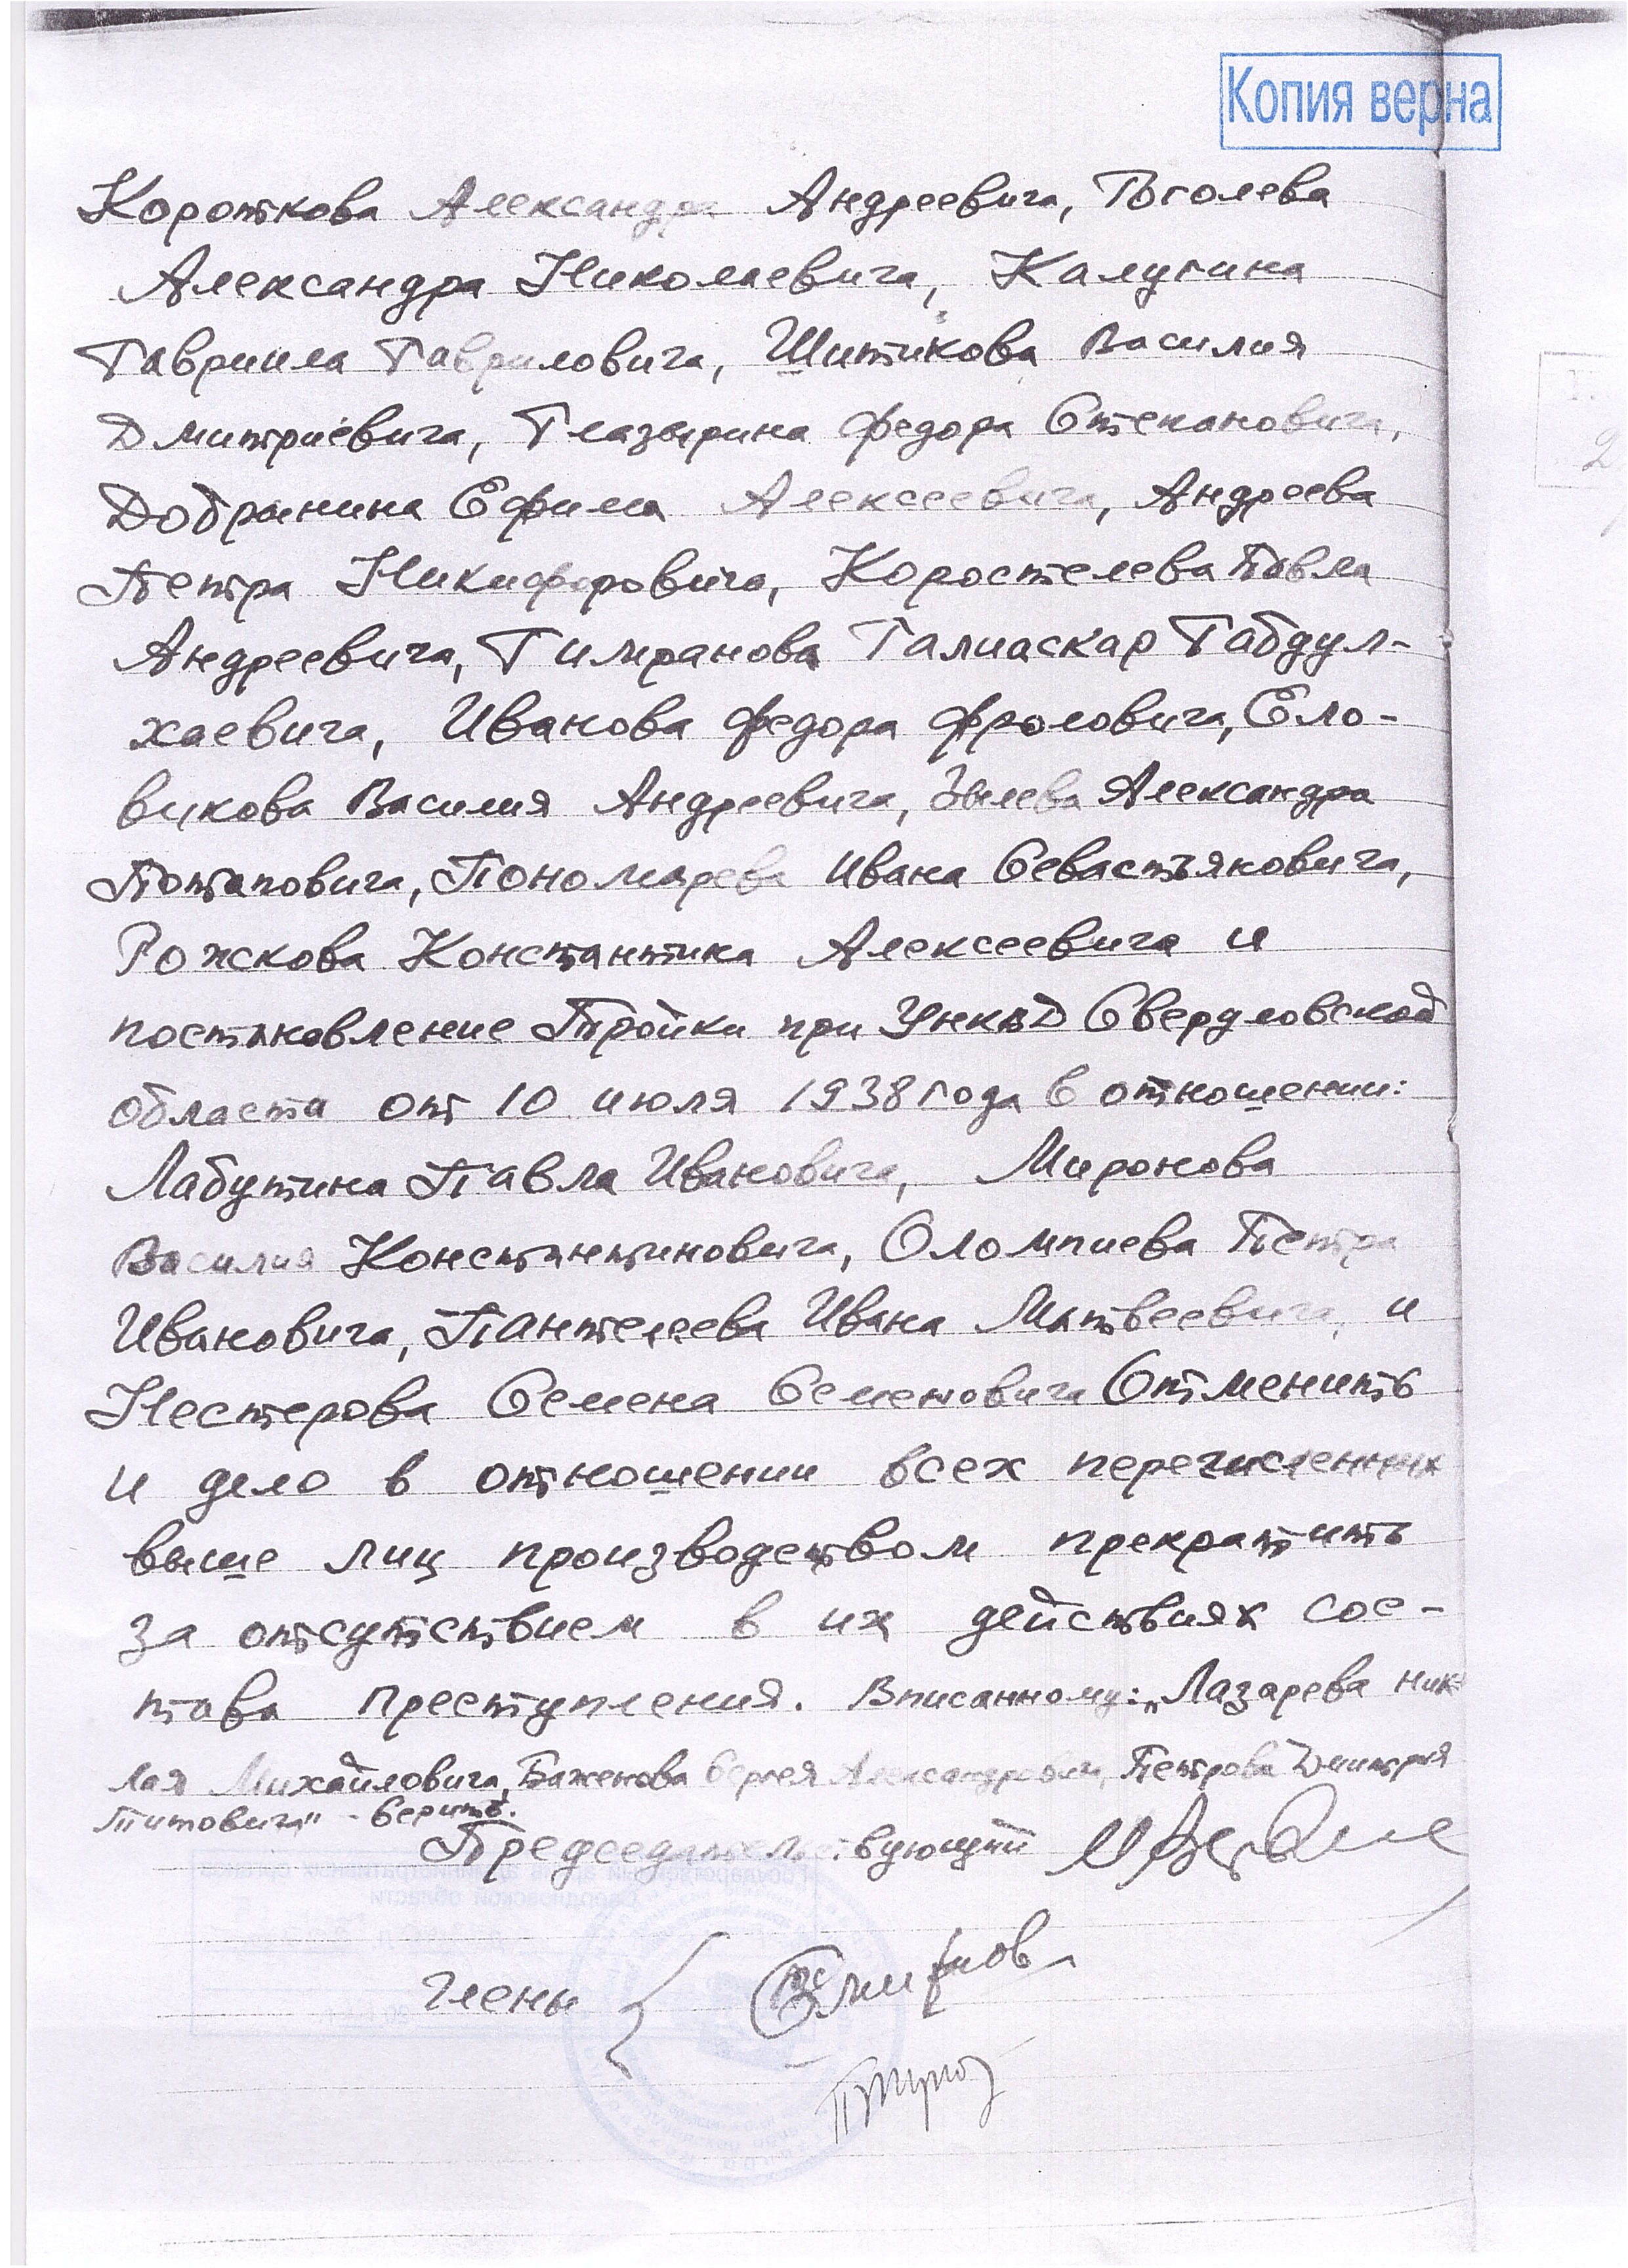 Копия верна
Короткова Александра Андреевича, Гоголева
Александра Николаевича, Калугина
Гавриила Гавриловича, Шитикова Василия
Дмитриевича, Глазырина Федора Степановича,
Добрынина Ефима Алексеевича, Андреева
Петра Никифоровича, Коростелева Павла
Андреевича, Гилиранова Галиаскар Габдул-
хаевича, Иванова Федора Фроловича, Ело-
викова Василия Андреевича, Зылева Александра
Потаповича, Пономарева Ивана Севастьяновича,
Рожскова Константина Алексеевича и
постановление Тройки при УНКВД Свердловской
области от 10 июля 1938 года в отношении:
Лабутина Павла Ивановича, Миронова
Василия Константиновича, Оломпиева Петра
Ивановича, Пантелеева Ивана Матвеевича, и
Нестерова Семена Семеновича Отменить
и дело в отношении всех перечисленных
выше лиц производством прекратить
за отсутствием в их действиях сос-
тава преступления. Вписанному: „Лазарева Ник
лая Михайловича, Баженова Сергея Александровича, Петрова Дмитрия
Титовича" - верить.
Председательствующий
Члены
Смирнов